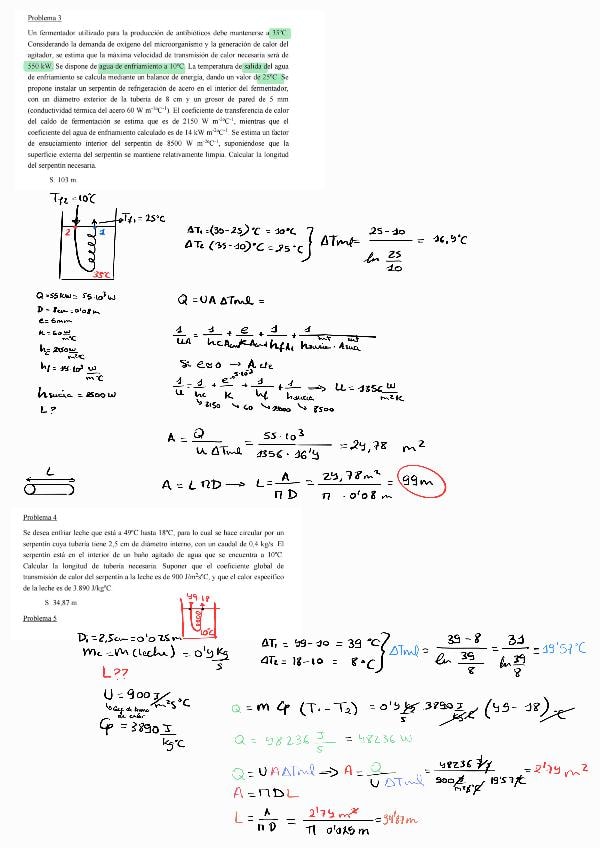 Problema 3
Un fermentador utilizado para la producción de antibióticos debe mantenerse a 35ºC.
Considerando la demanda de oxígeno del microorganismo y la generación de calor del
agitador, se estima que la máxima velocidad de transmisión de calor necesaria será de
550 kW. Se dispone de agua de enfriamiento a 10ºC. La temperatura de salida del agua
de enfriamiento se calcula mediante un balance de energía, dando un valor de 25ºC. Se
propone instalar un serpentín de refrigeración de acero en el interior del fermentador,
con un diámetro exterior de la tubería de 8 cm y un grosor de pared de 5 mm
(conductividad térmica del acero 60 W m⁻¹ºC⁻¹). El coeficiente de transferencia de calor
del caldo de fermentación se estima que es de 2150 W m⁻²ºC⁻¹, mientras que el
coeficiente del agua de enfriamiento calculado es de 14 kW m⁻²ºC⁻¹. Se estima un factor
de ensuciamiento interior del serpentín de 8500 W m⁻²ºC⁻¹, suponiéndose que la
superficie externa del serpentín se mantiene relativamente limpia. Calcular la longitud
del serpentín necesaria.
S. 103 m
Tf2 = 10ºC
Tf1 = 25ºC
2 1
35ºC
ΔT1 = (35-25) ºC = 10ºC
ΔT2 (35-10)ºC = 25ºC
ΔTml = 25-10 / ln 25/10 = 16,4ºC
Q = 55 kW = 55·10³ W
D = 8cm = 0'08m
e = 5mm
K = 60 W/mºC
L?
Q = UA ΔTml =
Si e<<0 → A cte
→ U = 1356 W/m²K
A = Q / U ΔTml = 55·10³ / 1356 · 16'4 = 24,78 m²
L
A = L Π D → L = A / Π D = 24,78m² / Π · 0'08 m = 99m
Problema 4
Se desea enfriar leche que está a 49ºC hasta 18ºC, para lo cual se hace circular por un
serpentín cuya tubería tiene 2,5 cm de diámetro interno, con un caudal de 0,4 kg/s. El
serpentín está en el interior de un baño agitado de agua que se encuentra a 10ºC.
Calcular la longitud de tubería necesaria. Suponer que el coeficiente global de
transmisión de calor del serpentín a la leche es de 900 J/m²sºC, y que el calor específico
de la leche es de 3.890 J/kgºC.
S. 34,87 m
Problema 5
49 18
10ºC
Di = 2,5cm = 0'025m
mc = m (leche) = 0'4 kg/s
L??
U = 900 J/m²sºC
Cp = 3890 J/kgºC
ΔT1 = 49-10 = 39 ºC
ΔT2 = 18-10 = 8ºC
ΔTml = 39-8 / ln 39/8 = 31 / ln 39/8 = 19'57ºC
Q = m Cp (T1-T2) = 0'4 kg/s 3890 J/kgºC (49-18)ºC
Q = 48236 J/s = 48236 W
Q = UAΔTml → A = Q / U ΔTml = 48236 J/s / 900 J/m²sºC 19'57ºC = 2'74 m²
A = ΠDL
L = A / ΠD = 2'74 m² / Π 0'025 m = 34'87m